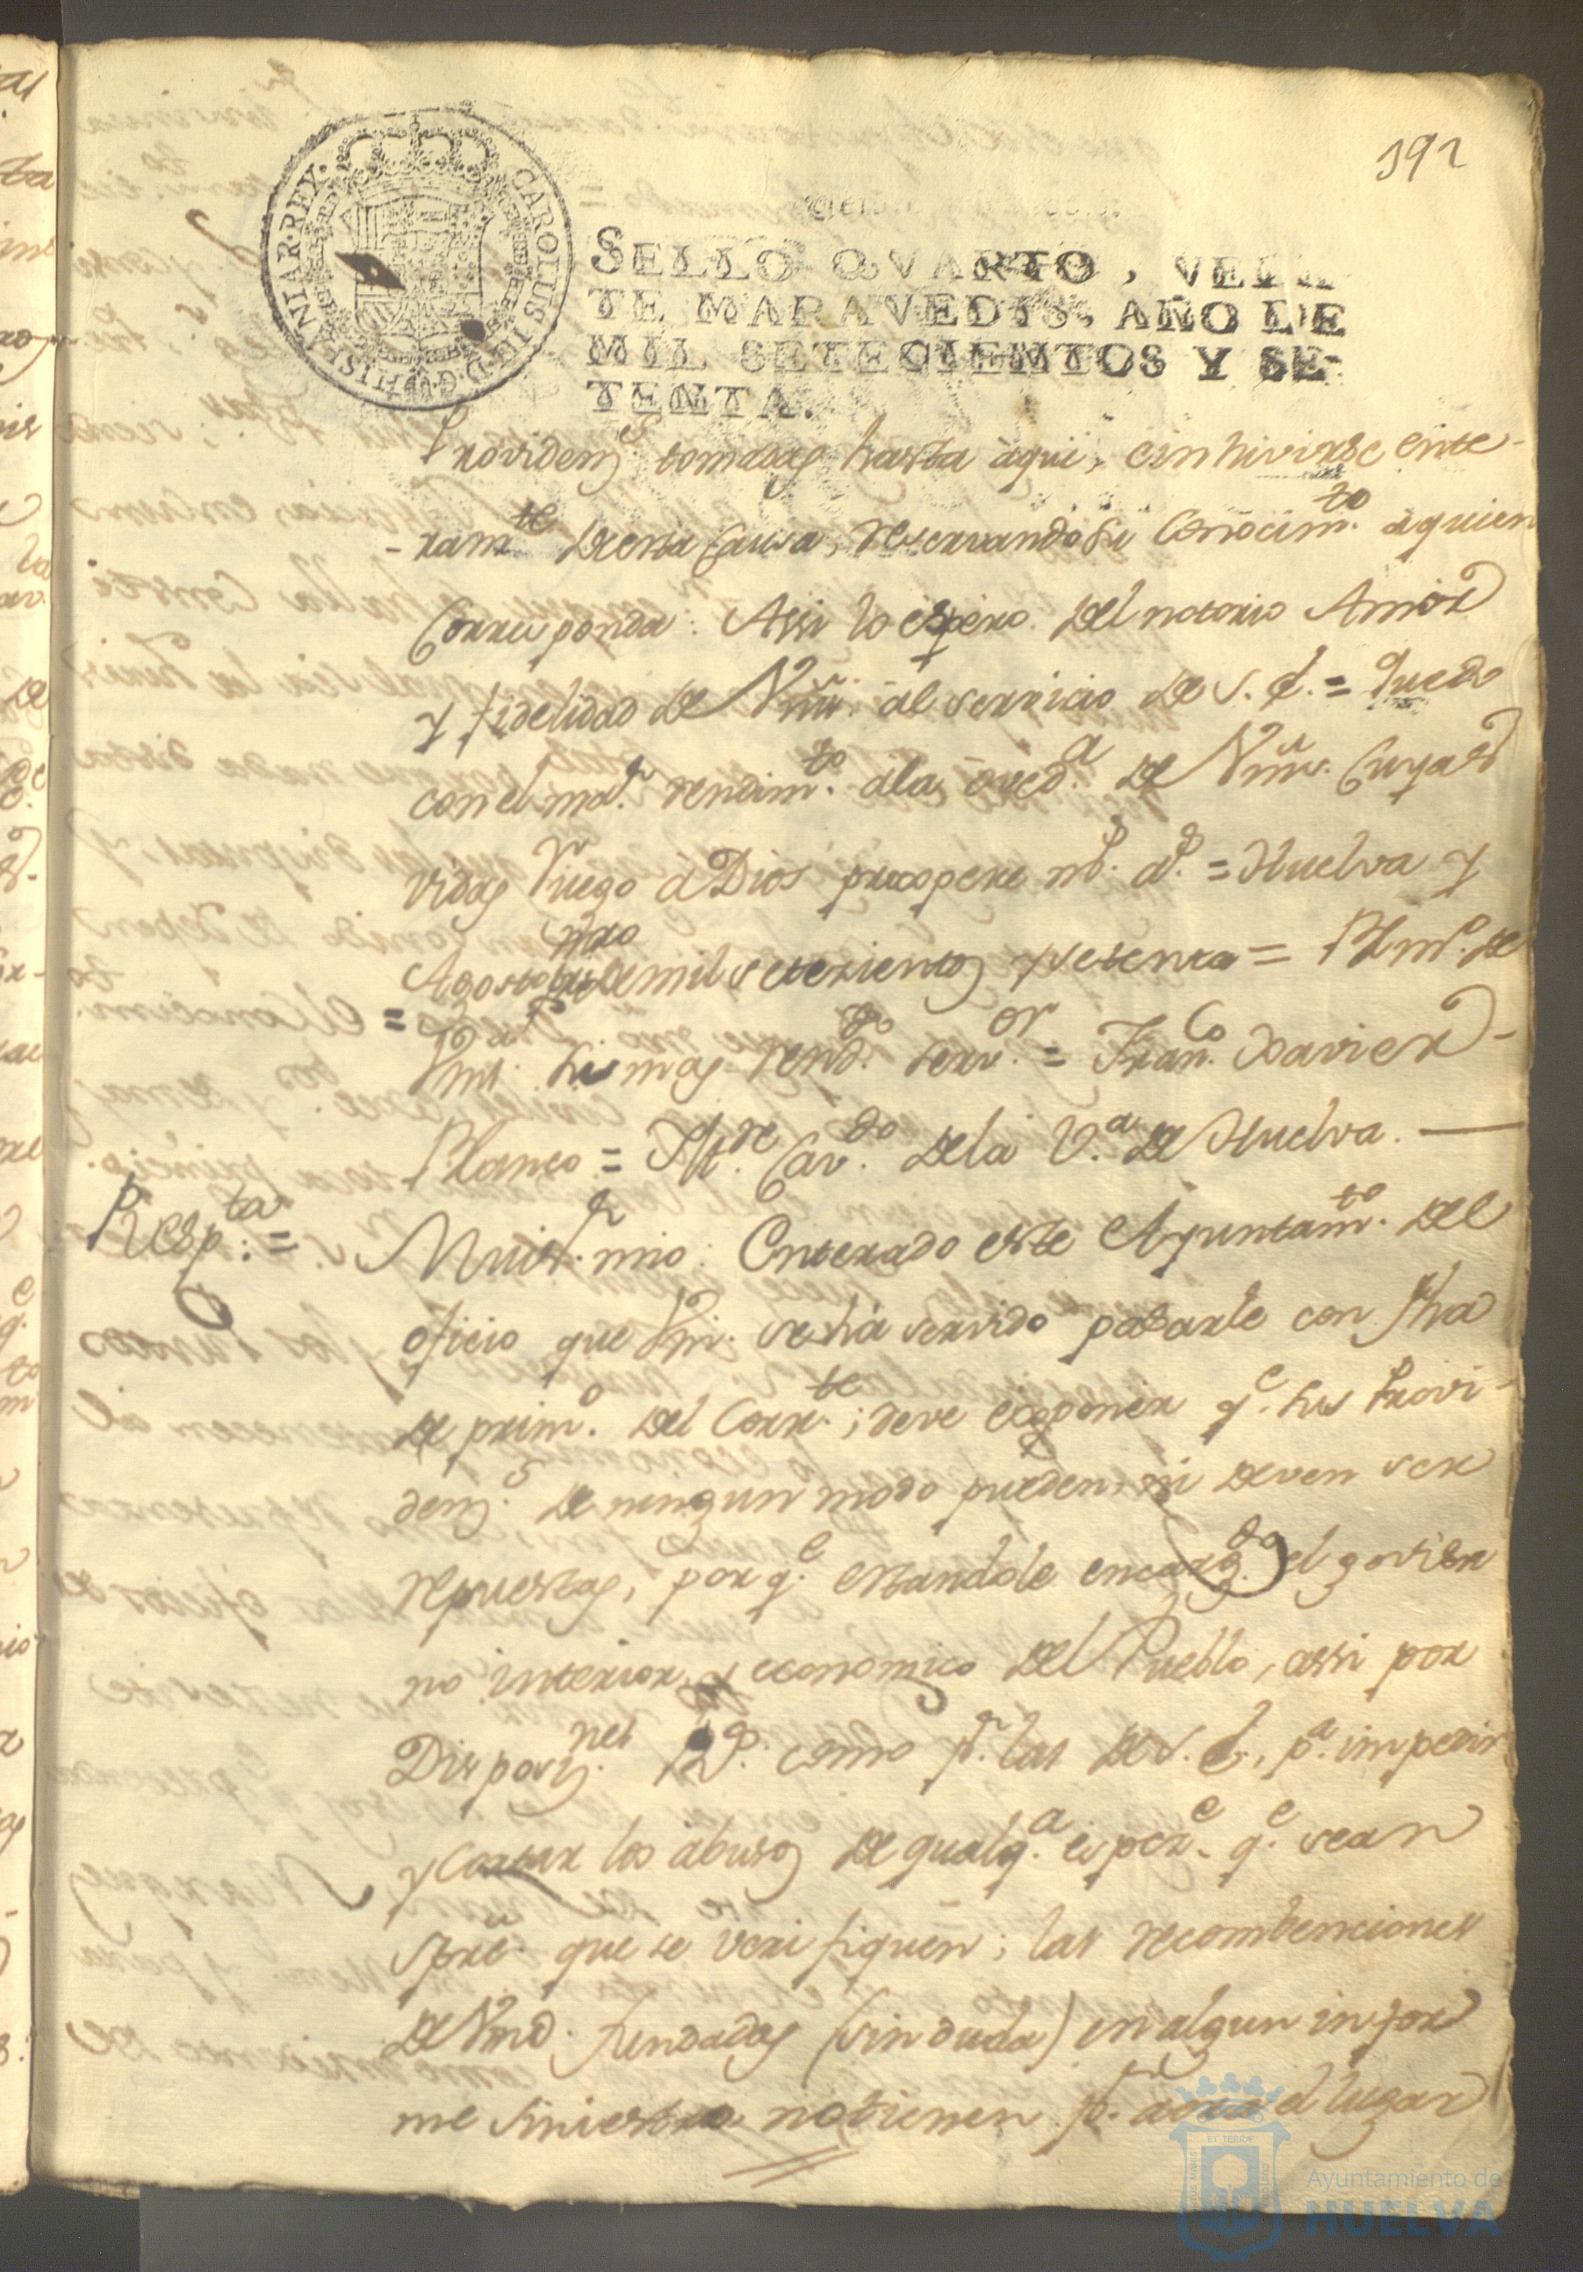 192
CAROLUS III. D. G. HISPANIAR. REX.
SELLO QVARTO, VEIN
TE MARAVEDIS, AÑO DE
MIL SETECIENTOS Y SE-
TENTA.
Providens. tomadas hasta aqui, è inhivirse ente-
-ramte. de esta Causa, reservando su Conocimto. a quien
Corresponda: Assi lo espero del notorio Amor
y fidelidad de Vm. al servicio de S. M. = Quedo
con el mor. rendimto. ala oveda. de Vm. Cuyas
vidas Ruego à Dios prospere ms. as. = Huelva y
Agosto de mil setezientos y setenta = Blmo. de
= Vms. su mas rendo. servor. = Franco. Xavier
Blanco = Ille. Cavdo. dela Va. de Huelva. —
Respta. = Mui sr. mio: Enterado este Ayuntamto. del
oficio que Vm. se hà servido pasarle con fha
de primo. del Corrte.; deve exponer qe. sus Provi-
dens. de ningun modo pueden, ni deven ser
repuestas, por qe. estandole encargdo. el govier
no interior, y economico del Pueblo, assi por
Disposiznes. Rs. como pr. las de S. E., pa. impedir
y Cortar los abusos de qualqa. espece. qe. sean
spre. que se verifiquen; las recombenciones
de Vmd. fundadas (sin duda) en algun infor
me siniestro no tienen pr. aora el lugar
Ayuntamiento de
HUELVA